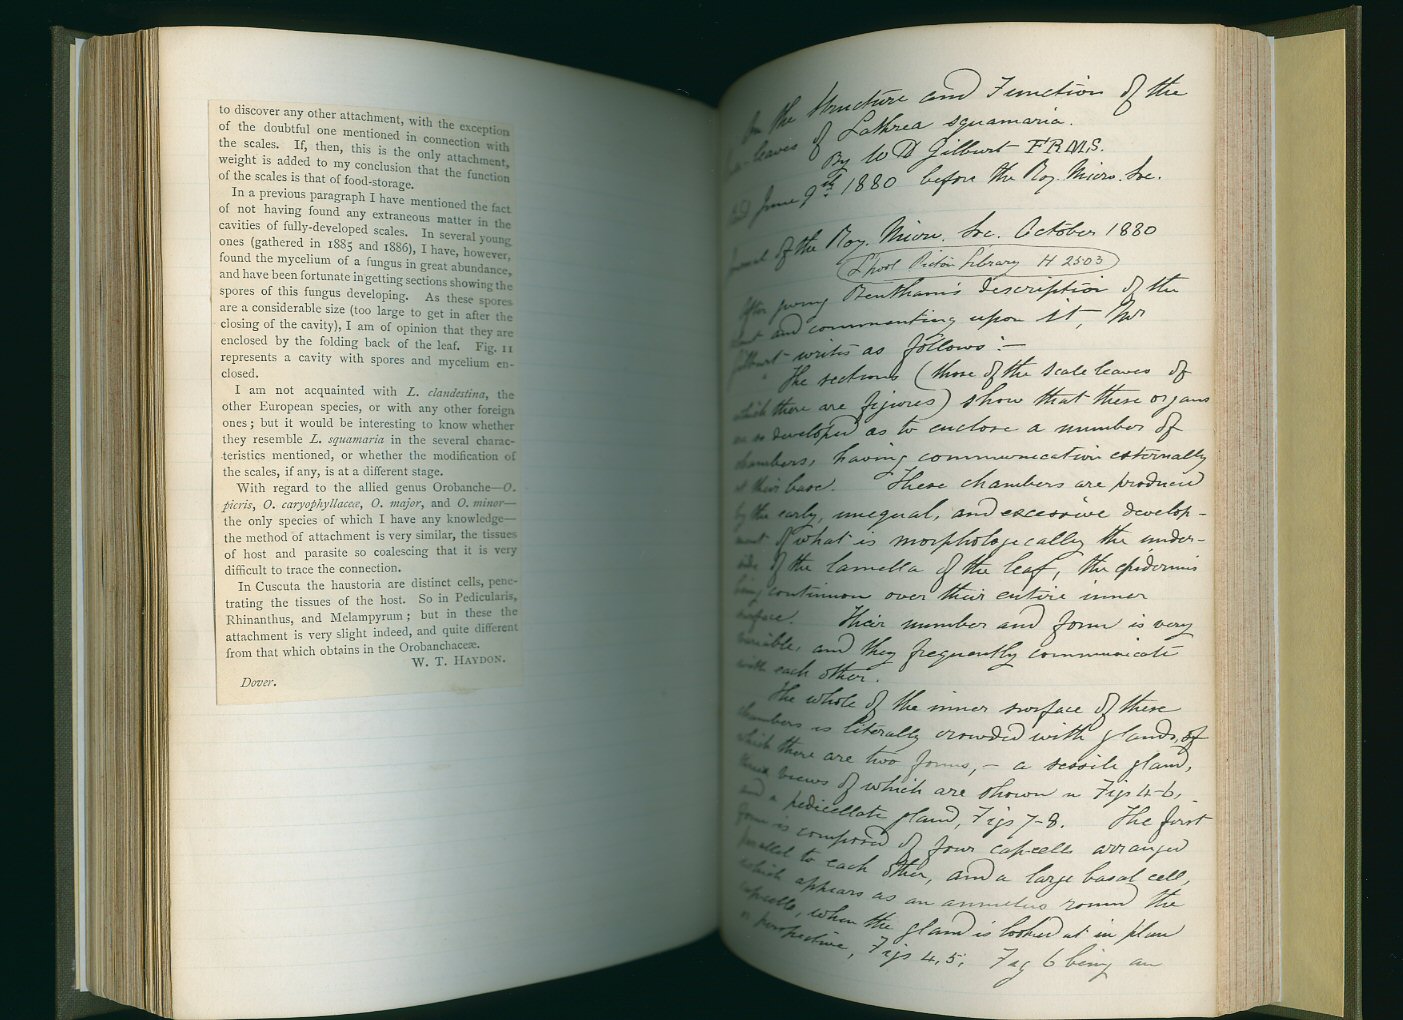 to discover any other attachment, with the exception
of the doubtful one mentioned in connection with
the scales. If, then, this is the only attachment,
weight is added to my conclusion that the function
of the scales is that of food-storage.
In a previous paragraph I have mentioned the fact
of not having found any extraneous matter in the
cavities of fully-developed scales. In several young
ones (gathered in 1885 and 1886), I have, however,
found the mycelium of a fungus in great abundance,
and have been fortunate in getting sections showing the
spores of this fungus developing. As these spores
are a considerable size (too large to get in after the
closing of the cavity), I am of opinion that they are
enclosed by the folding back of the leaf. Fig. 11
represents a cavity with spores and mycelium en-
closed.
I am not acquainted with L. clandestina, the
other European species, or with any other foreign
ones; but it would be interesting to know whether
they resemble L. squamaria in the several charac-
teristics mentioned, or whether the modification of
the scales, if any, is at a different stage.
With regard to the allied genus Orobanche—O.
picris, O. caryophyllaceæ, O. major, and O. minor—
the only species of which I have any knowledge—
the method of attachment is very similar, the tissues
of host and parasite so coalescing that it is very
difficult to trace the connection.
In Cuscuta the haustoria are distinct cells, pene-
trating the tissues of the host. So in Pedicularis,
Rhinanthus, and Melampyrum; but in these the
attachment is very slight indeed, and quite different
from that which obtains in the Orobanchaceæ.
W. T. HAYDON.
Dover.
On the Structure and Function of the
leaves of Lathrea squamaria.
By W D Gilburt FRMS.
June 9th 1880 before the Roy. Micro. Soc.
Journal of the Roy. Micro. Soc. October 1880
L'pool Picton Library H 2503
After giving Bentham's description of the
and commenting upon it, Mr
Gilburt writes as follows:—
"The sections (those of the scale leaves of
which there are figures) show that these organs
are so developed as to enclose a number of
chambers, having communication externally
at their base. These chambers are produced
by the early, unequal, and excessive develop-
ment of what is morphologically the under-
side of the lamella of the leaf, the epidermis
being continuous over their entire inner
surface. Their number and form is very
variable, and they frequently communicate
with each other.
The whole of the inner surface of these
chambers is literally crowded with glands, of
which there are two forms, - a sessile gland,
three views of which are shown in Figs 4-6,
and a pedicellate gland, Figs 7-8. The first
form is composed of four cap-cells arranged
parallel to each other, and a large basal cell,
which appears as an annulus round the
capcells, when the gland is looked at in plan
or perspective, Figs 4, 5; Fig 6 being an